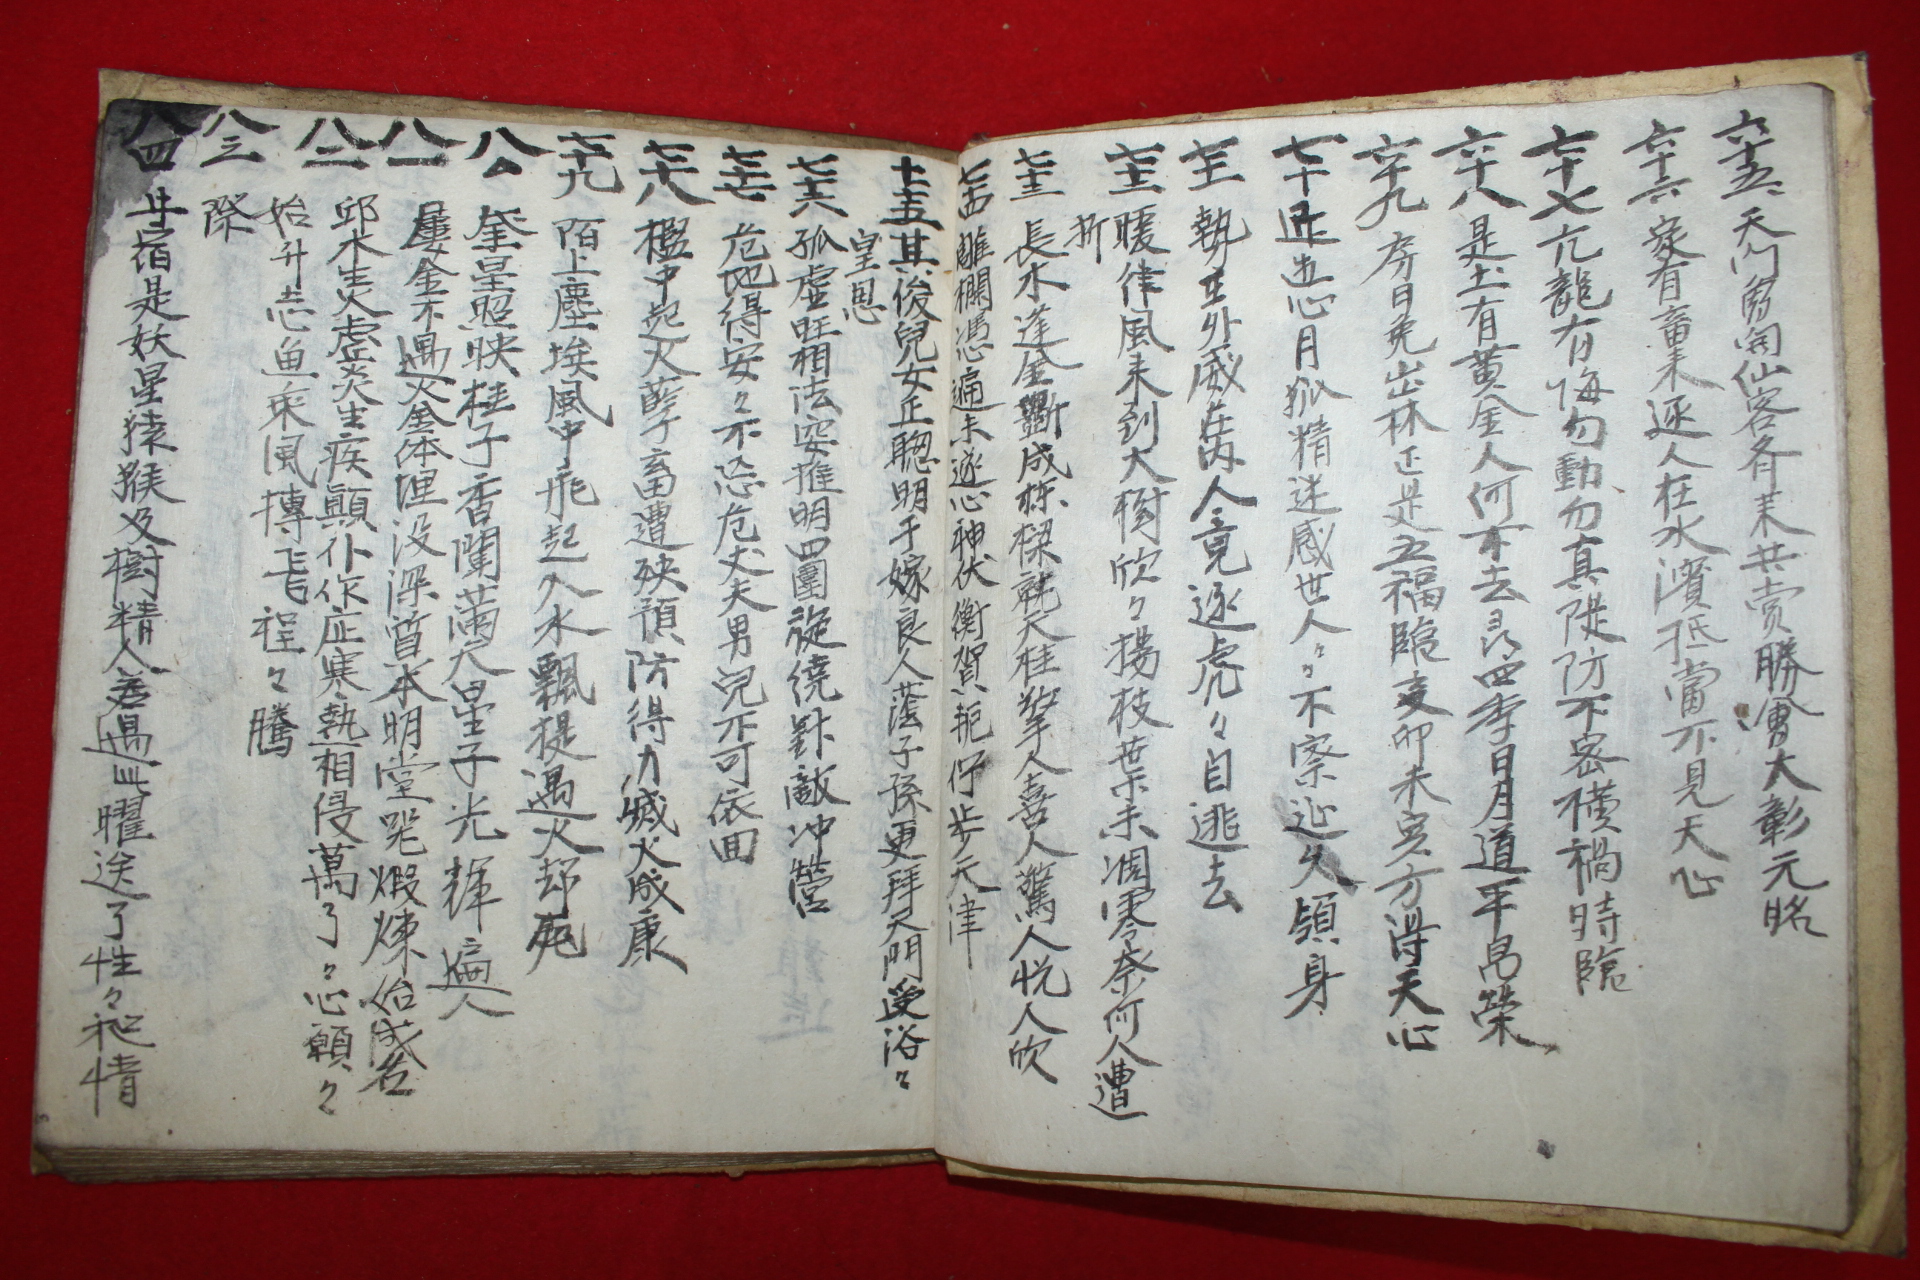 六十五 天門 仙客各來共賞勝會大彰元昭
六十六 家有畜來逐人在水濱抵當不見天心
六十七 亢龍有悔勿動勿真 防不密橫禍時臨
六十八 是土有黃金人何不去尋四季日月道平昌榮
六十九 房日兔出林正是五福臨 卯未亥方得天心
七十 心月狐精迷惑世人々不察 久領身
七十一 執 外威在內人竟逐虎々自逃去
七十二 暖律風來到大樹欣々揚枝葉未凋零奈何人遭
折
七十三 長水逢金斷成棟樑就天桂擎人喜人驚人悅人欣
七十四 雕欄憑遍未遂心神伏衡賀 步天津
七十五 其後兒女正聰明于嫁良人蔭子孫更拜天門受浴々
皇恩
七十六 孤虛旺相法安推明四圍旋繞對敵冲營
七十七 危地得安々不恐危丈夫男兒不可依回
七十八 檻中起火孽子畜遭殃預防得力滅火成康
七十九 陌上塵埃風中飛起入水飄提遇火却死
八〇 奎星照映桂子香蘭 星子光輝 人
八一 婁金不遇火金體埋没深質本明堂 煅煉始成名
八二 邱水生火虛炎生疾顛仆作症寒熱相侵萬了々心願々
八三 始升志魚乘風摶 程々騰
際
八四 井宿是妖星猿猴及樹精人若遇此曜迷了性々 情